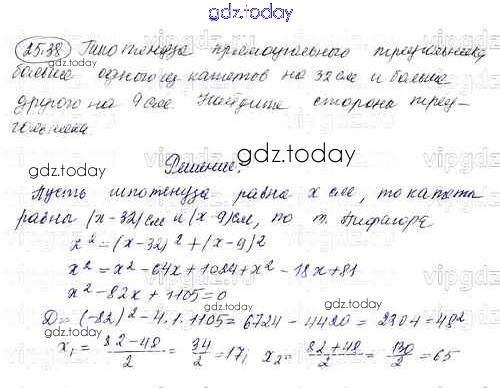 gdz.today
25.38 Гипотенуза прямоугольного треугольника
больше одного из катетов на 32 см и больше
другого на 9 см. Найдите стороны треу-
гольника.
gdz.today
Решение:
Пусть гипотенуза равна x см, то катеты
равны (x-32) см и (x-9) см, по т. Пифагора
x² = (x-32)² + (x-9)²
x² = x² - 64x + 1024 + x² - 18x + 81
x² - 82x + 1105 = 0
D = (-82)² - 4·1·1105 = 6724 - 4420 = 2304 = 48²
x₁ = (82-48)/2 = 34/2 = 17; x₂ = (82+48)/2 = 130/2 = 65
gdz.today